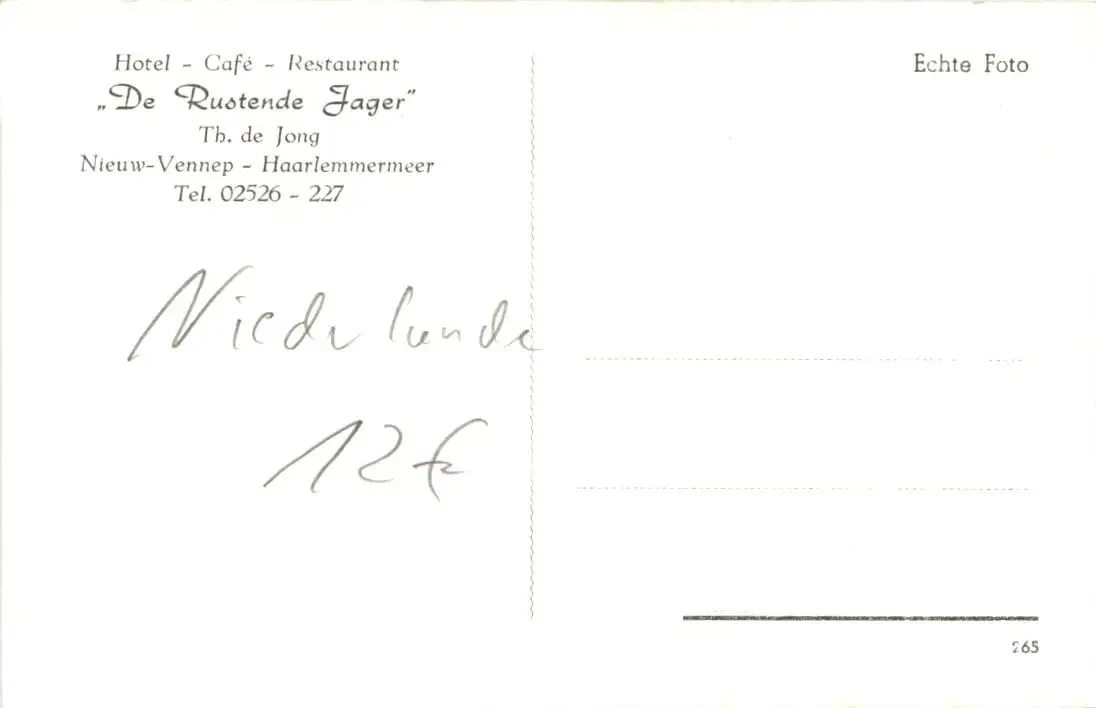 Hotel - Café - Restaurant
„De Rustende Jager"
Th. de Jong
Nieuw-Vennep - Haarlemmermeer
Tel. 02526 - 227
Echte Foto
Niederlande
12 €
265